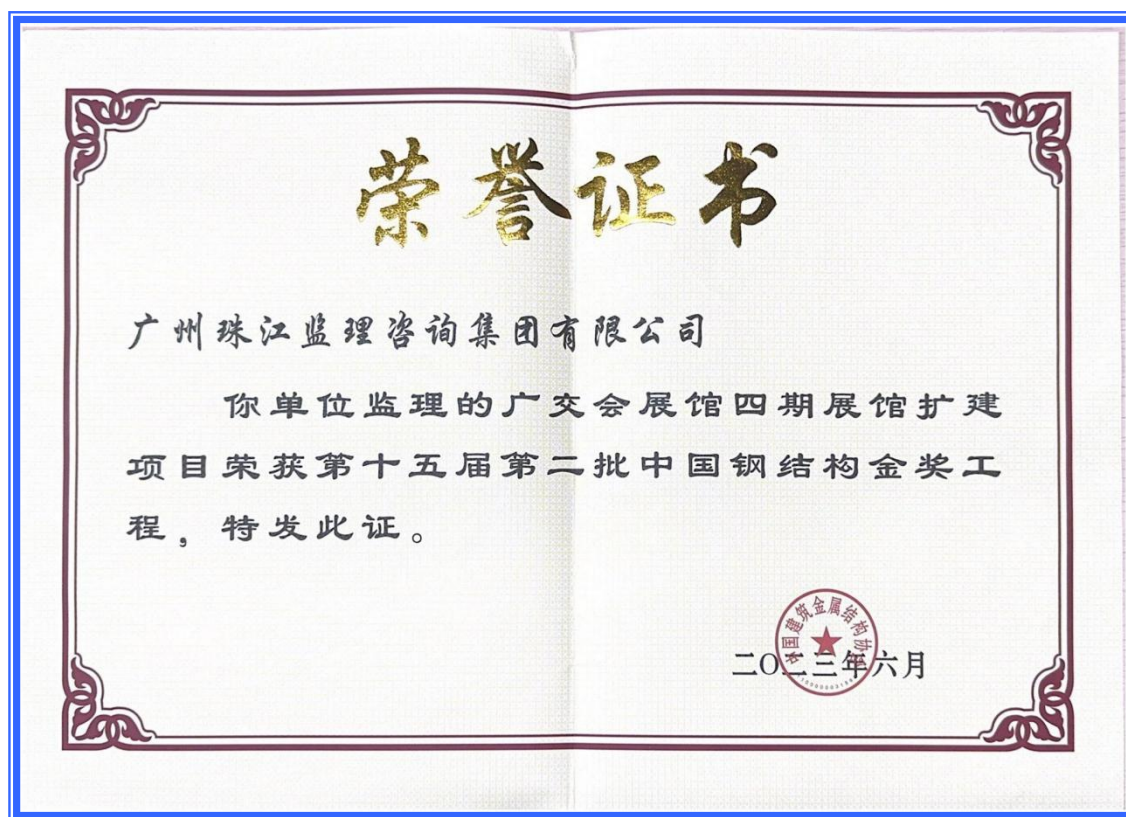 荣誉证书
广州珠江监理咨询集团有限公司
你单位监理的广交会展馆四期展馆扩建
项目荣获第十五届第二批中国钢结构金奖工
程，特发此证。
中国建筑金属结构协会
二〇二三年六月